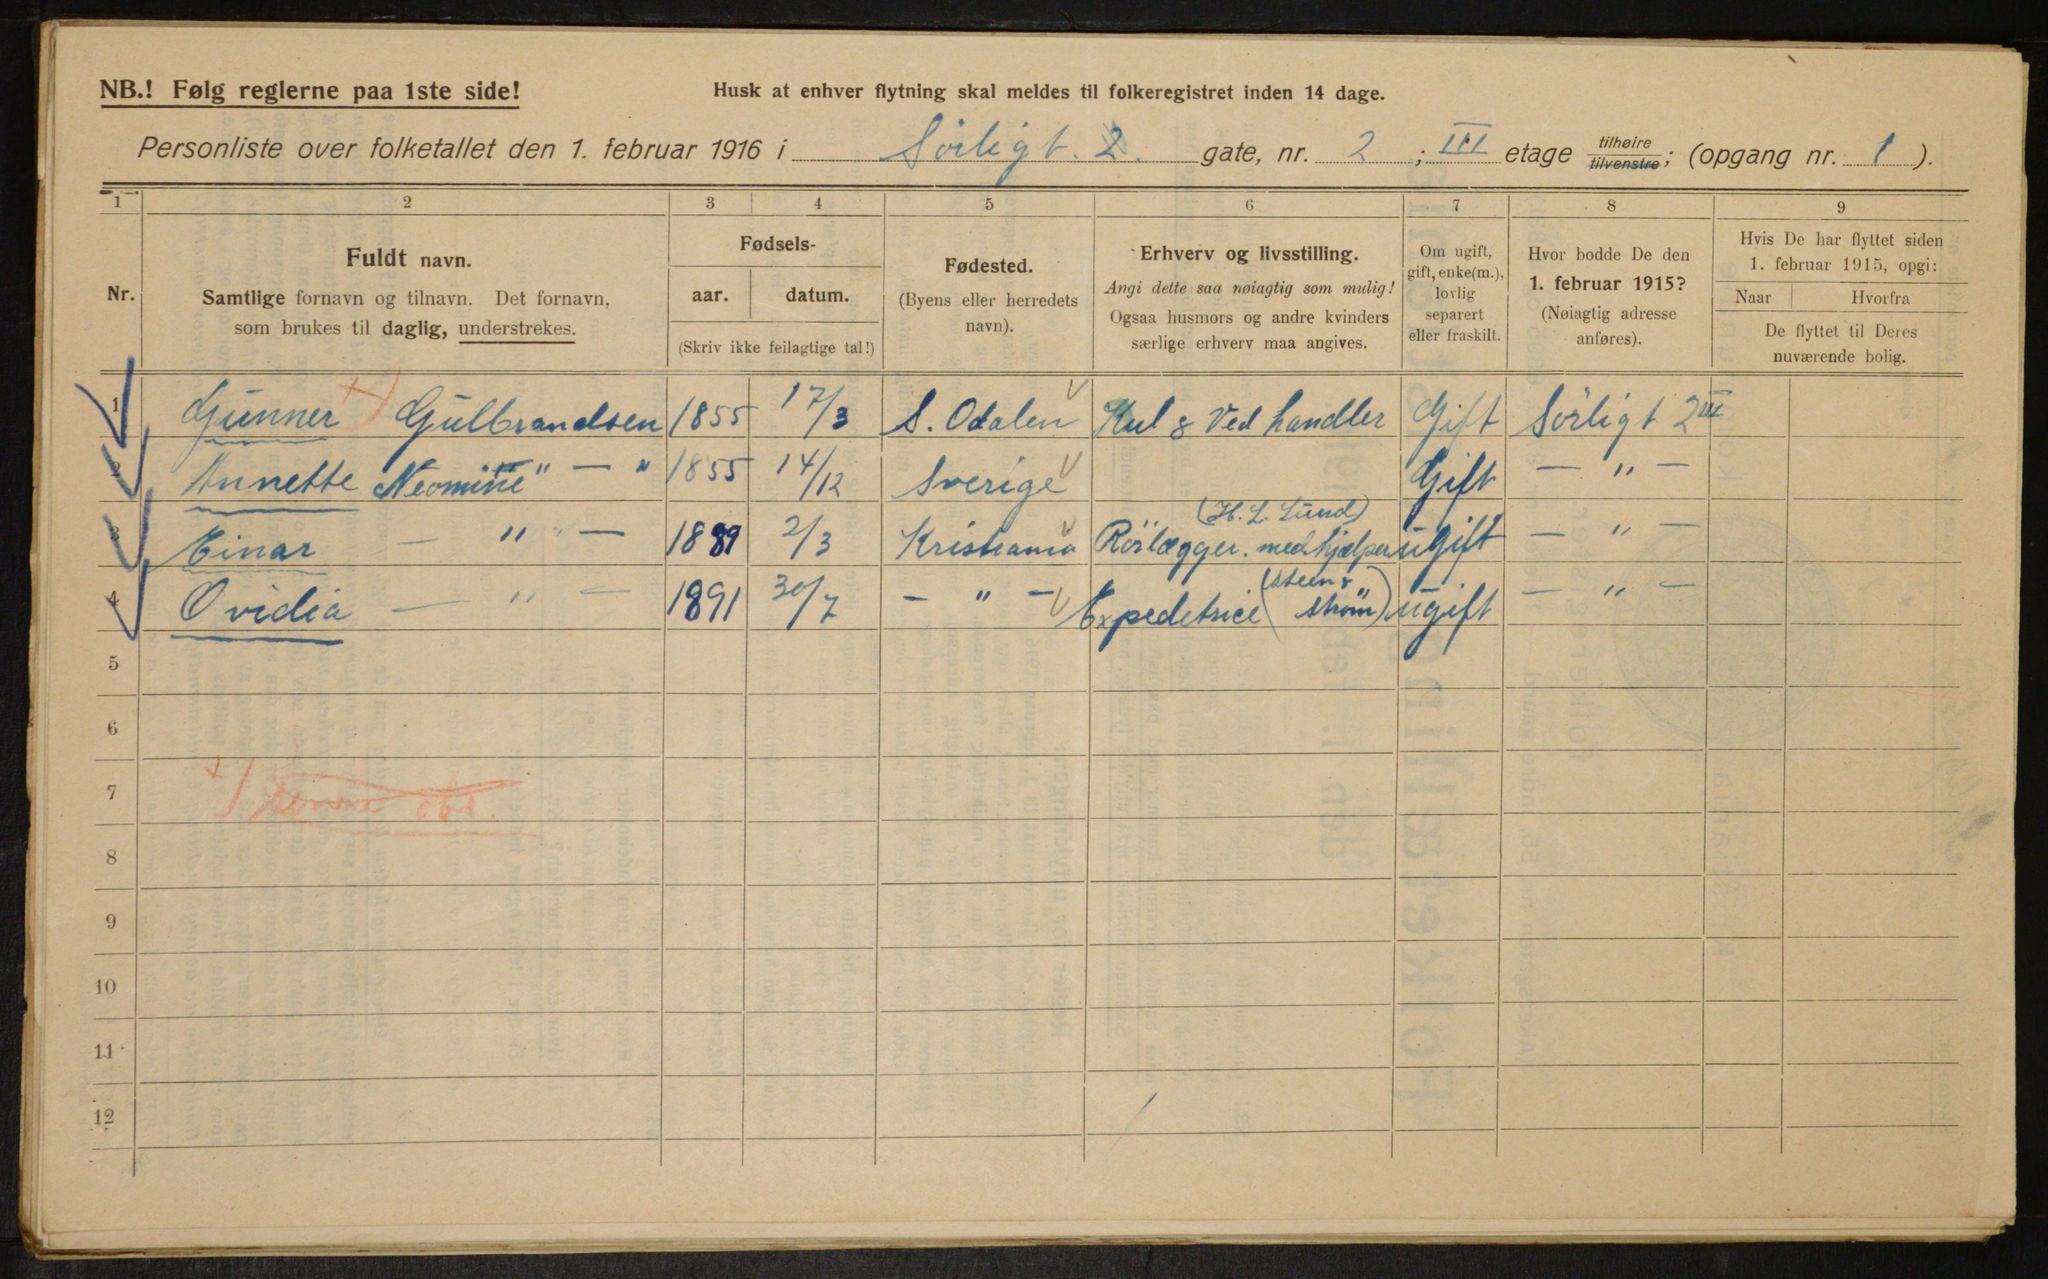 NB.! Følg reglerne paa 1ste side!
Husk at enhver flytning skal meldes til folkeregistret inden 14 dage.
Personliste over folketallet den 1. februar 1916 i Sörligt. 2. gate, nr. 2 ; III etage tilhøire tilvenstre; (opgang nr. 1 ).
1 2 3 4 5 6 7 8 9
Nr.
Fuldt navn.
Samtlige fornavn og tilnavn. Det fornavn,
som brukes til daglig, understrekes.
Fødsels-
aar. datum.
(Skriv ikke feilagtige tal!)
Fødested.
(Byens eller herredets
navn).
Erhverv og livsstilling.
Angi dette saa nøiagtig som mulig!
Ogsaa husmors og andre kvinders
særlige erhverv maa angives.
Om ugift,
gift, enke(m.),
lovlig
separert
eller fraskilt.
Hvor bodde De den
1. februar 1915?
(Nøiagtig adresse
anføres).
Hvis De har flyttet siden
1. februar 1915, opgi:
Naar Hvorfra
De flyttet til Deres
nuværende bolig.
1 Gunner Gulbrandsen 1855 17/3 S. Odalen Kul & Ved handler Gift Sörligt 2 III
2 Annette Neomine " — " 1855 14/12 Sverige Gift — " —
(H. L. Lund)
3 Einar — " — 1889 2/3 Kristiania Rörlægger. medhjælper ugift — " —
4 Ovidia — " — 1891 30/7 — " — Expeditrice (Steen & Strøm) ugift — " —
5
6
7
8
9
10
11
12